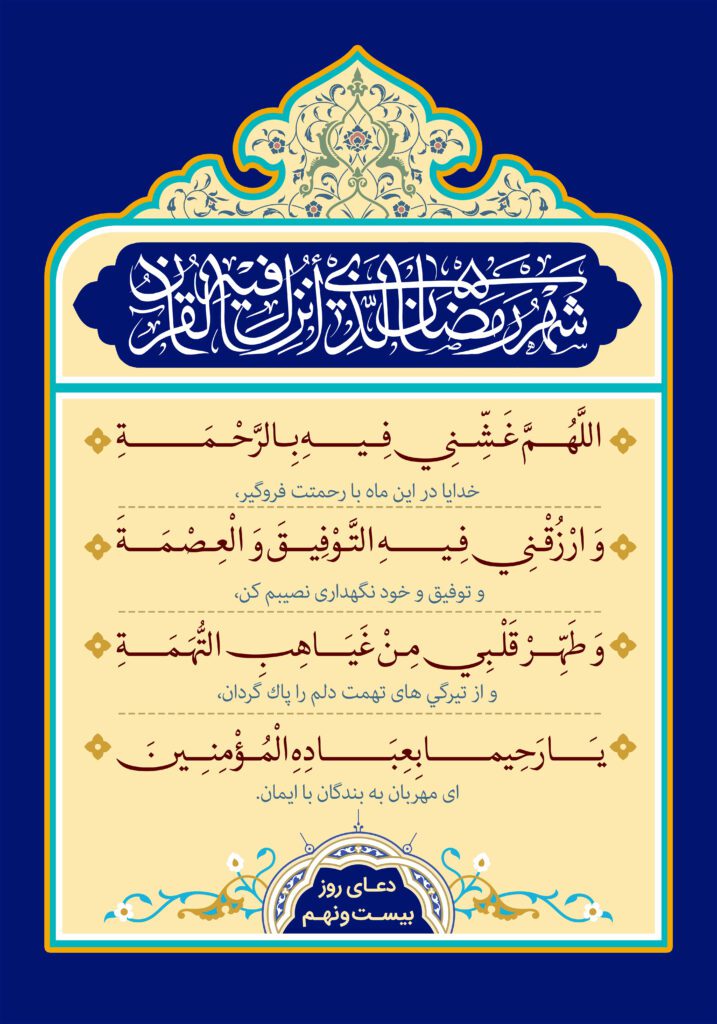 شَهْرُ رَمَضَانَ الَّذِي أُنْزِلَ فِيهِ الْقُرْآنُ
اللَّهُمَّ غَشِّنِي فِيهِ بِالرَّحْمَةِ
خدایا در این ماه با رحمتت فروگیر،
وَ ارْزُقْنِي فِيهِ التَّوْفِيقَ وَ الْعِصْمَةَ
و توفیق و خود نگهداری نصیبم کن،
وَ طَهِّرْ قَلْبِي مِنْ غَيَاهِبِ التُّهَمَةِ
و از تیرگي های تهمت دلم را پاك گردان،
يَا رَحِيما بِعِبَادِهِ الْمُؤْمِنِينَ
ای مهربان به بندگان با ایمان.
دعـای روز
بیسـت‌ونهـم